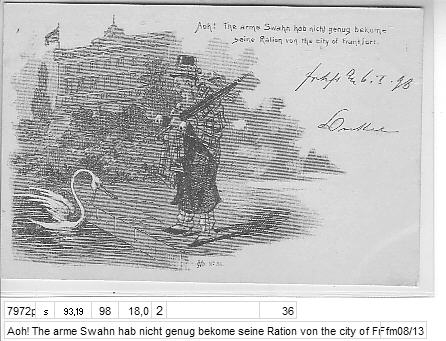 Aoh! The arme Swahn hab nicht genug bekom=
seine Ration von the city of Frankfort.
7972p s 93,19 98 18,0 2 36
Aoh! The arme Swahn hab nicht genug bekome seine Ration von the city of Fr fm08/13